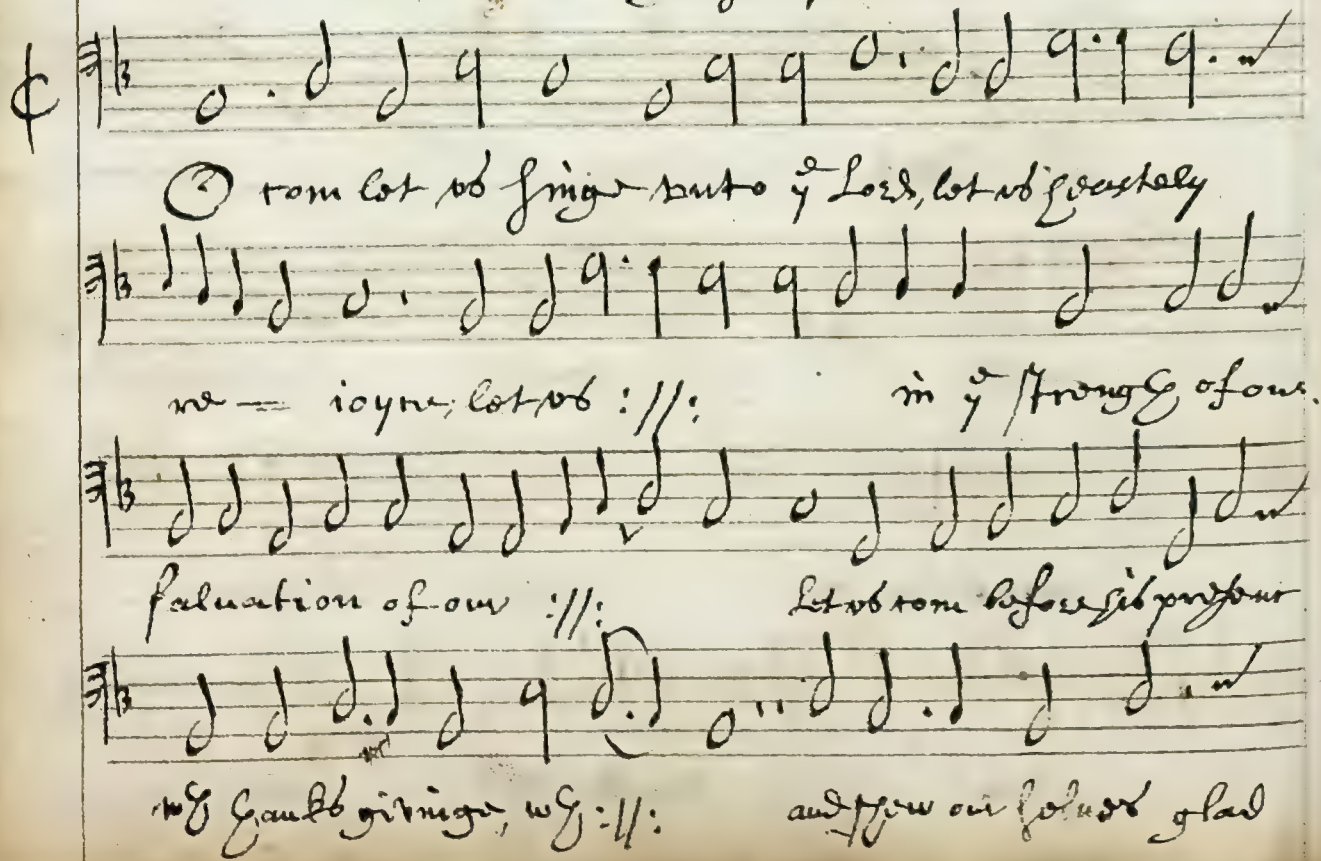 O com let vs singe vnto yͤ Lord, let vs heartely
re — ioyce, let vs ://:
in yͤ strength of our
saluation of our ://:
Let vs com before his presenc
wth thanksgivinge, wth ://:
and shew our selues glad